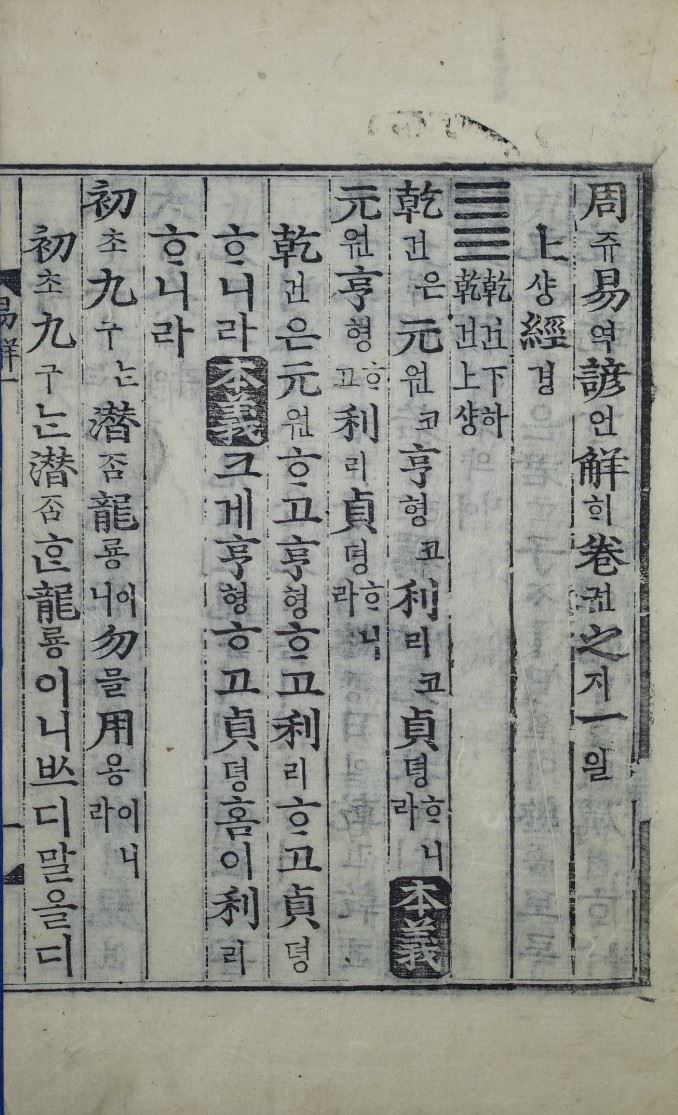 周쥬易역諺언解ᄒᆡ卷권之지一일
上샹經경
䷀乾건下하乾건上샹
乾건은元원코亨형코利리코貞뎡ᄒᆞ니라本義
元원亨형ᄒᆞ고利리貞뎡ᄒᆞ니라
乾건은元원ᄒᆞ고亨형ᄒᆞ고利리ᄒᆞ고貞뎡
ᄒᆞ니라本義크게亨형ᄒᆞ고貞뎡홈이利리
ᄒᆞ니라
初초九구ᄂᆞᆫ潛ᄌᆞᆷ龍룡이니勿믈用용이니라
初초九구ᄂᆞᆫ潛ᄌᆞᆷᄒᆞᆫ龍룡이니ᄡᅳ디말올디
易解一
一